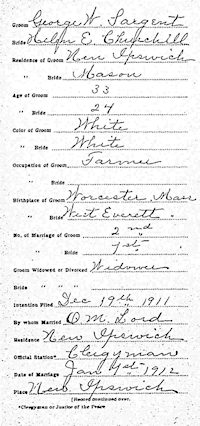 Groom George W. Sargent
Bride Helyn E. Churchill
Residence of Groom New Ipswich
" Bride Mason
Age of Groom 33
" Bride 24
Color of Groom White
" Bride White
Occupation of Groom Farmer
" Bride
Birthplace of Groom Worcester Mass
" Bride West Everett "
No. of Marriage of Groom 2nd
" Bride 1st
Groom Widowed or Divorced Widower
Bride " " "
Intention Filed Dec 19th 1911
By whom Married O. M. Lord
Residence New Ipswich
Official Station* Clergyman
Date of Marriage Jan 1st 1912
Place New Ipswich
[Record continued over.
*Clergyman or Justice of the Peace